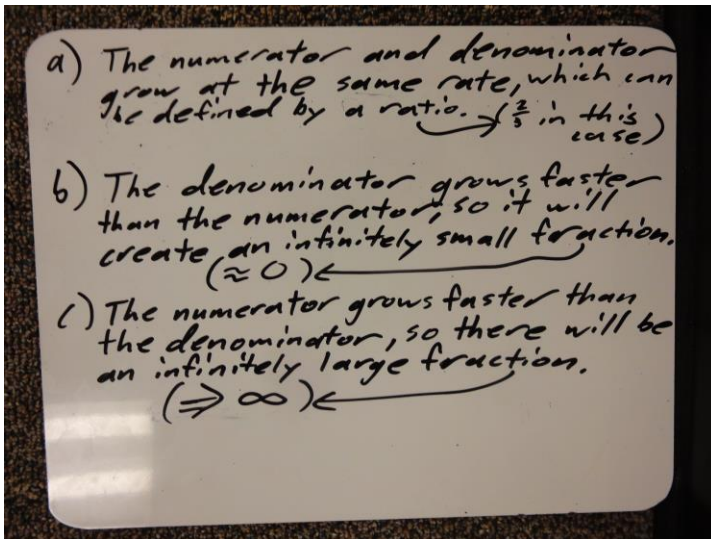 a) The numerator and denominator
grow at the same rate, which can
be defined by a ratio. (2/3 in this
case)
b) The denominator grows faster
than the numerator, so it will
create an infinitely small fraction.
(≈ 0)
c) The numerator grows faster than
the denominator, so there will be
an infinitely large fraction.
(⇒ ∞)